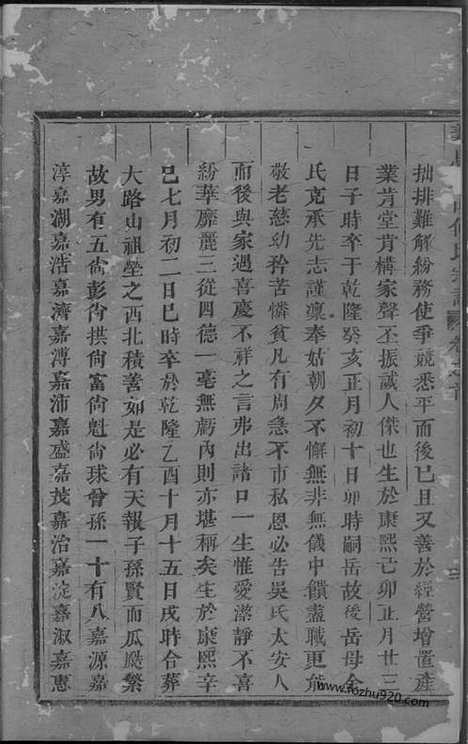 拙排難解紛務使爭競悉平而後已且又善於經營增置產
業肯堂肯構家聲丕振誠人傑也生於康熙己卯正月廿三
日子時卒于乾隆癸亥正月初十日卯時嗣岳故後岳母余
氏克承先志謹凜奉姑朝夕不懈無非無儀中饋盡職更能
敬老慈幼矜苦憐貧凡有周急不市私恩必告吳氏太安人
而後與家遇喜慶不祥之言弗出諸口一生惟愛潔靜不喜
紛華靡麗三從四德一毫無虧內則亦堪稱矣生於康熙辛
巳七月初二日巳時卒於乾隆乙酉十月十五日戌時合葬
大路山祖塋之西北積善如是必有天報子孫賢而瓜瓞繁
故男有五尙彭尙拱尙富尙魁尙球曾孫一十有八嘉源嘉
淳嘉湖嘉浩嘉濟嘉溥嘉沛嘉盛嘉茂嘉治嘉淀嘉淑嘉惠
氏宗譜
www.fozhu920.com